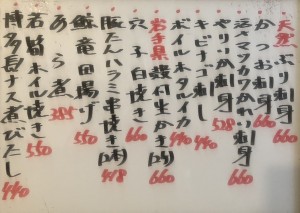 天然ぶり刺身 660
かつお刺身 660
活〆マツカワかれい刺身
やりいか刺身 528
キビナゴ刺し 440
ボイルホタルイカ 440
岩手県 殻付生かき(2ヶ) 660
穴子白焼き 660
豚たんハラミ串焼き(2本) 418
鯨竜田揚げ 550
あら煮 385
若鶏ホイル焼き 550
博多長ナス煮びたし 440